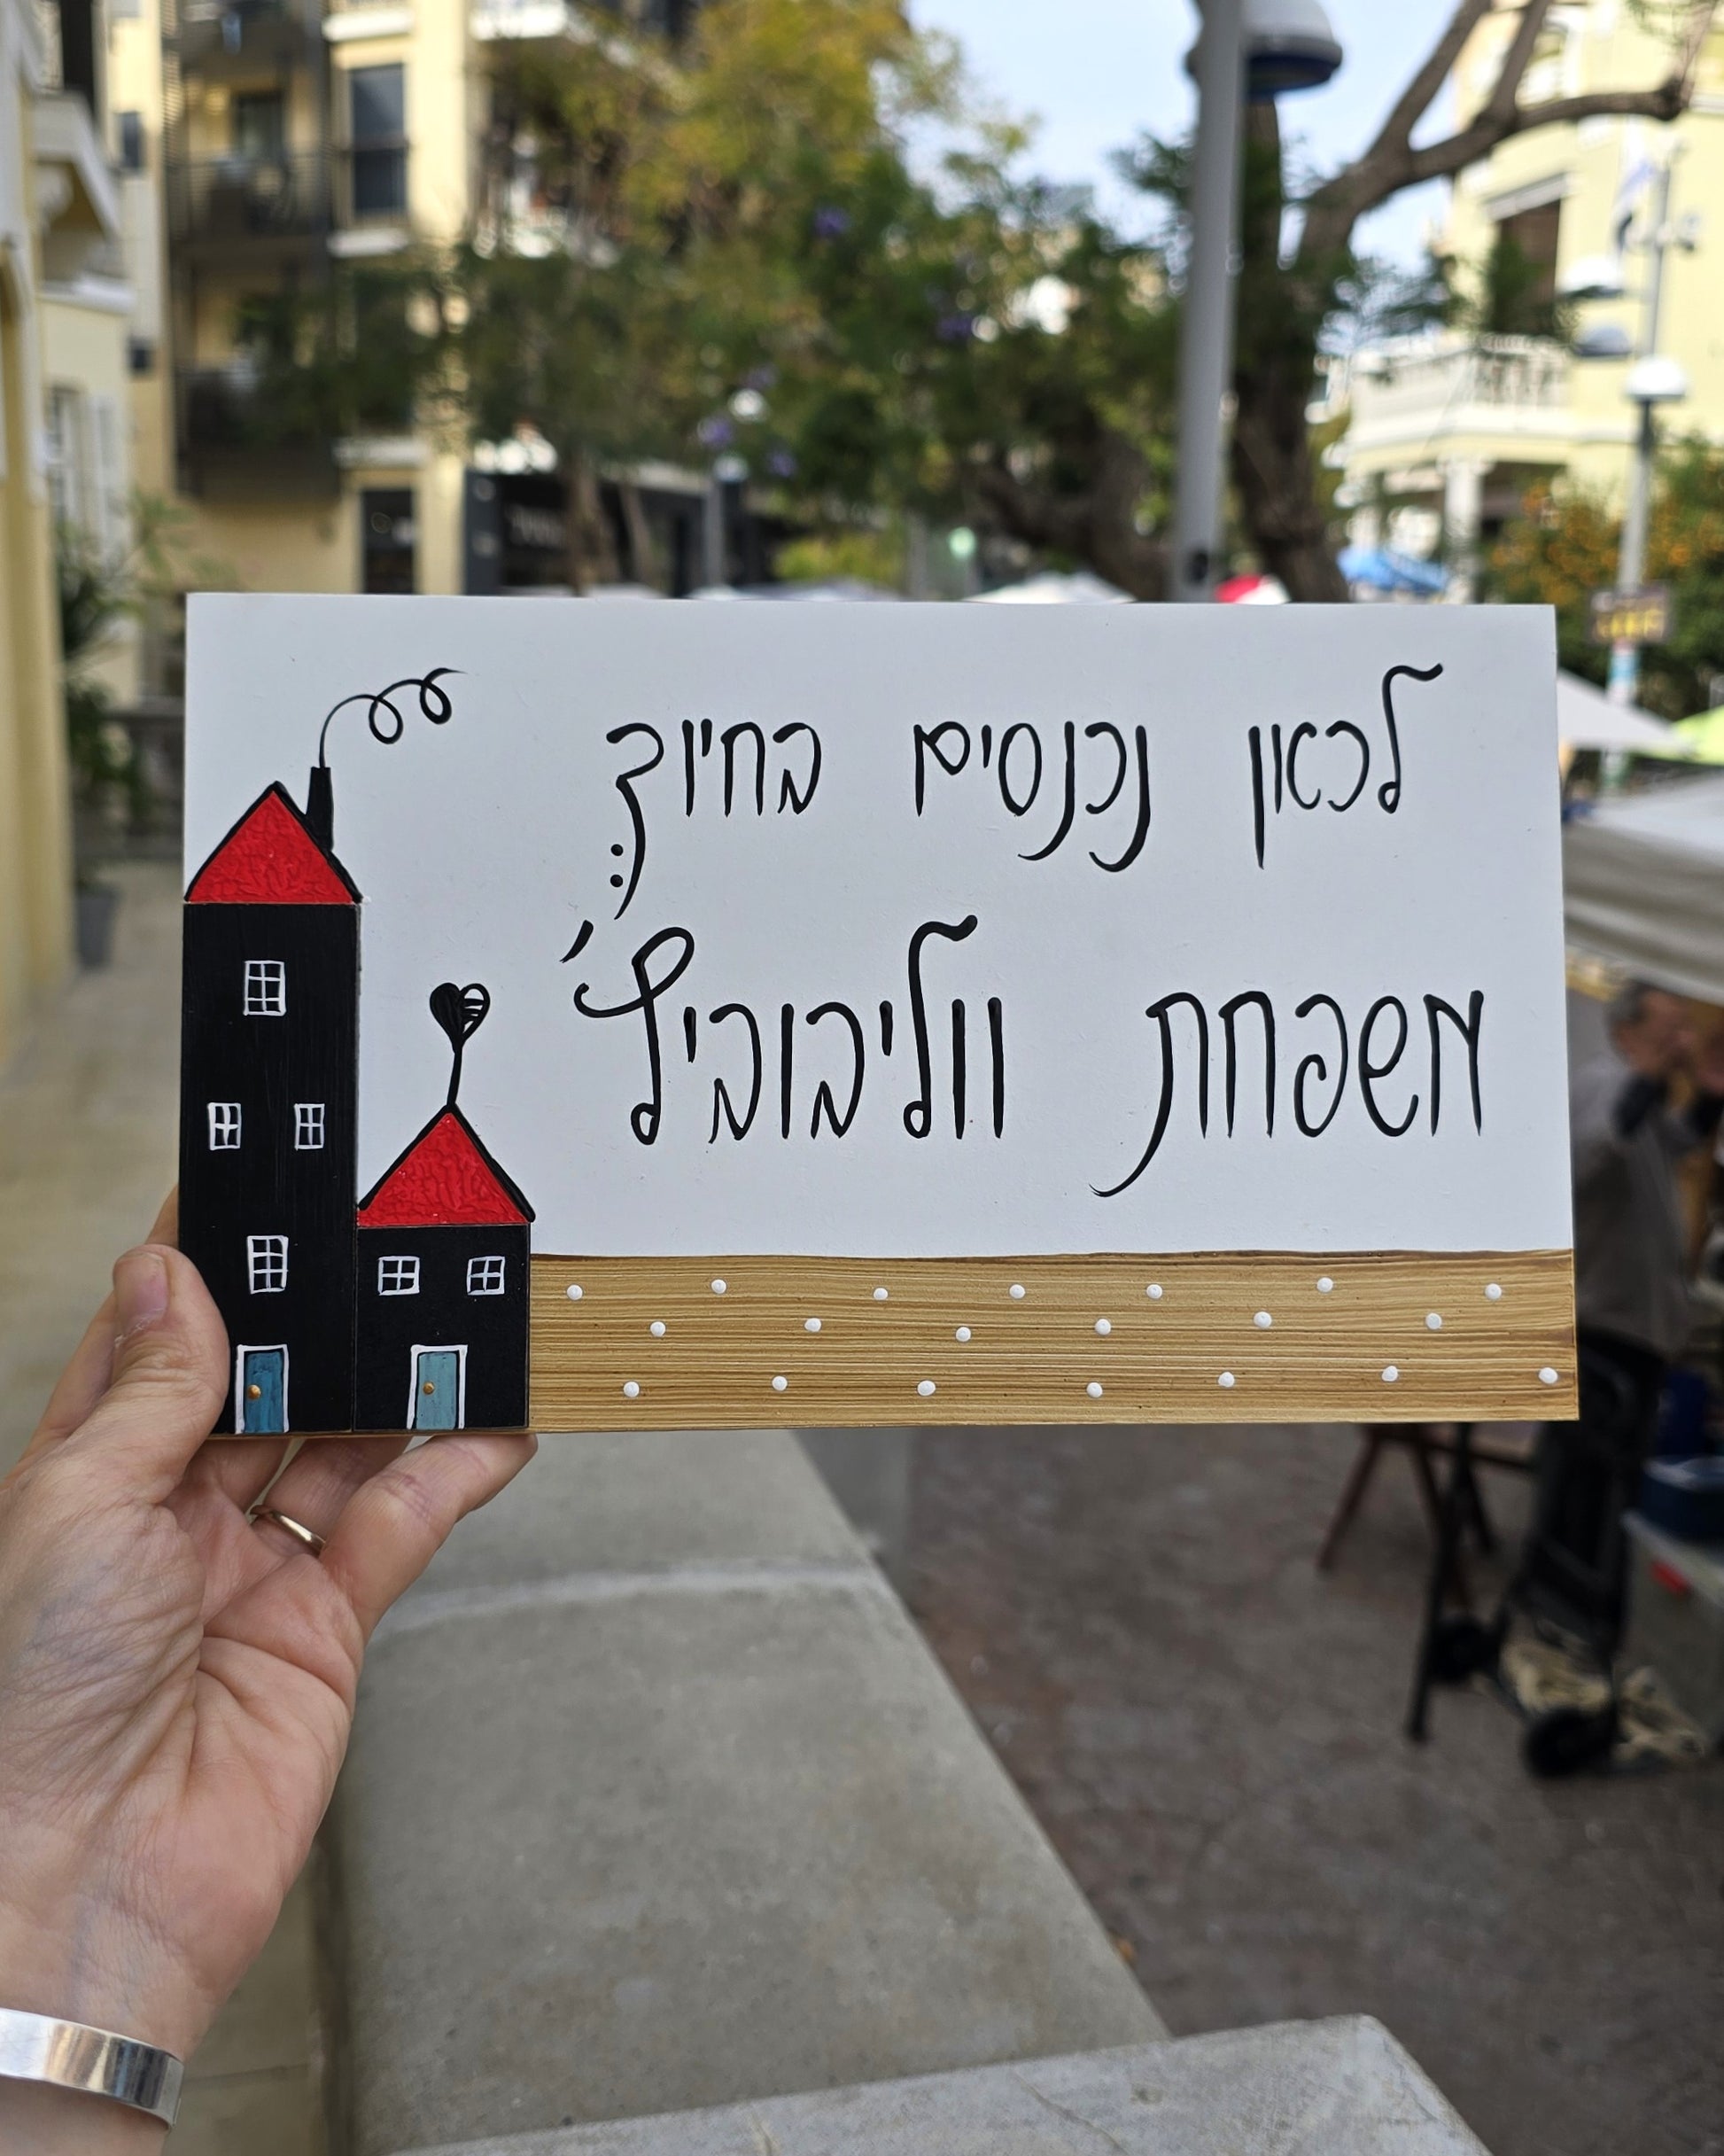 לכאן נכנסים בחיוך:
משפחת ווליבוביץ'